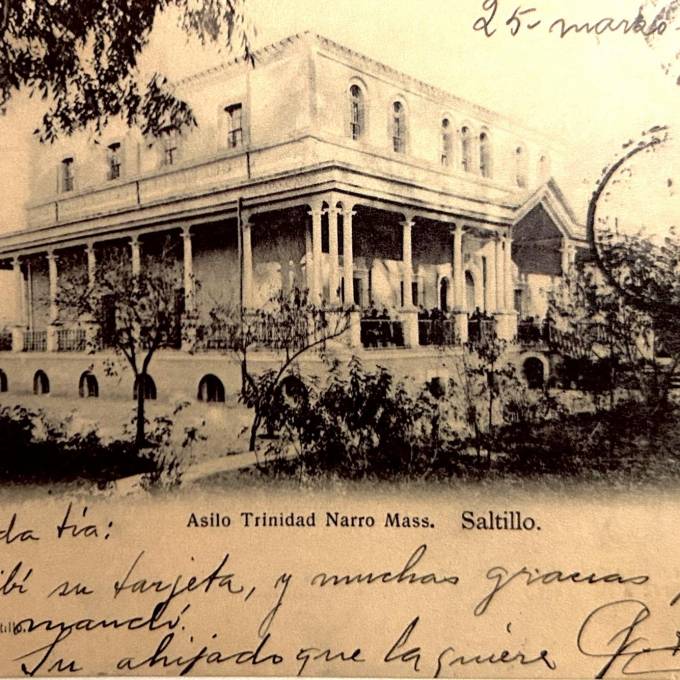 25-marzo-
Asilo Trinidad Narro Mass. Saltillo.
da tía:
ibí su tarjeta, y muchas gracias
mandó.
Su ahijado que la quiére